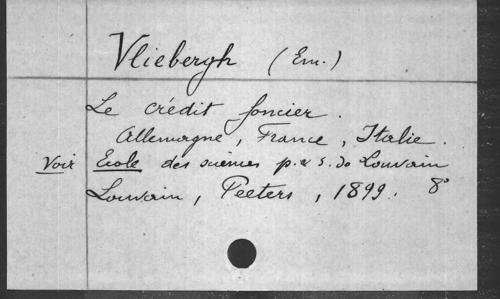 Vliebergh (Em.)
Le crédit foncier.
Allemagne, France, Italie.
Voir Ecole des sciences p. & s. de Louvain
Louvain, Peeters, 1899. 8°